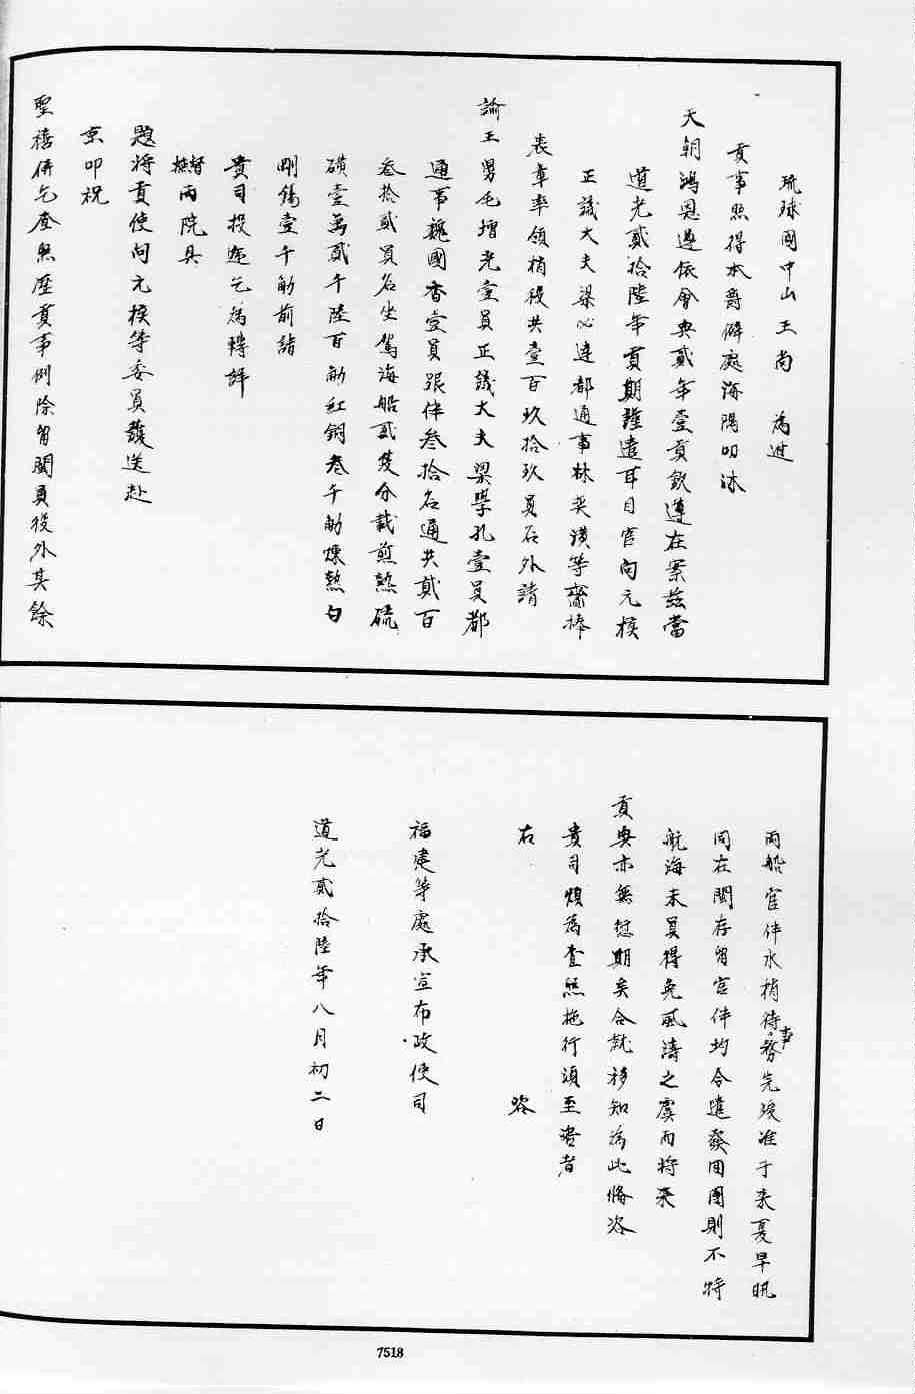 琉球國中山王尚　為進
貢事照得本爵僻處海隅叨沐
天朝鴻恩遵依會典貳年壹貢欽遵在案茲當
道光貳拾陸年貢期謹遣耳目官向元模
正議大夫梁必達都通事林奕濆等齎捧
表章率領梢役共壹百玖拾玖員名外請
諭王舅毛增光壹員正議大夫梁學孔壹員都
通事魏國香壹員跟伴叁拾名通共貳百
叁拾貳員名坐駕海船貳隻分載煎熟硫
磺壹萬貳千陸百觔紅銅叁千觔煉熟白
剛錫壹千觔前詣
貴司投遞乞為轉詳
督撫兩院具
題將貢使向元模等委員護送赴
京叩祝
聖禧併乞查照歷貢事例除留閩員役外其餘
兩船官伴水梢待事務完竣准于來夏早汛
同在閩存留官伴均令遣發回國則不特
航海末員得免風濤之虞而將來
貢典亦無愆期矣合就移知為此備咨
貴司煩為查照施行須至咨者
右　咨
福建等處承宣布政使司
道光貳拾陸年八月初二日
7518